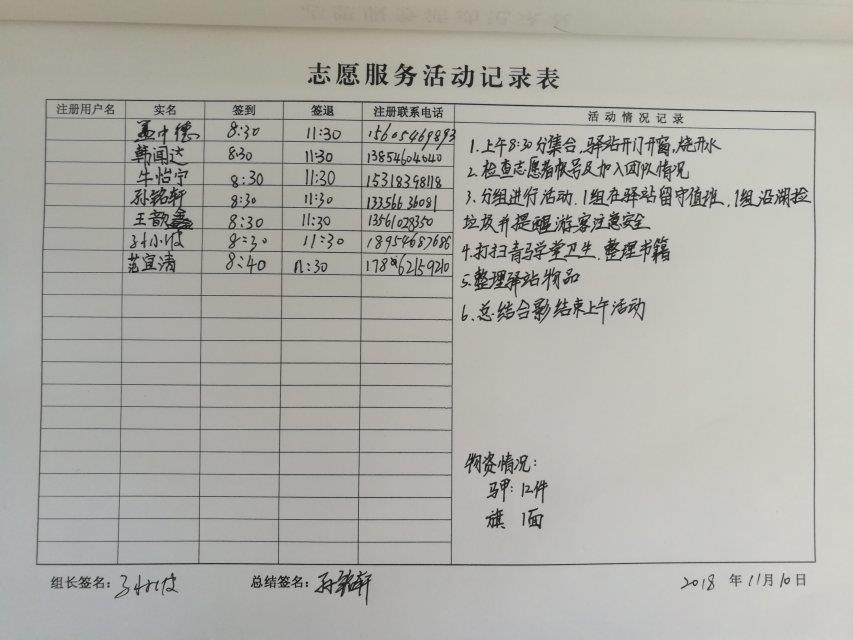 志愿服务活动记录表
注册用户名 实名 签到 签退 注册联系电话 活动情况记录
孟中德 8:30 11:30 15605469893
韩闻达 8:30 11:30 13854604040
牛怡宁 8:30 11:30 15318398118
孙铭轩 8:30 11:30 13356636081
王歆 8:30 11:30 13561028350
孙小波 8:30 11:30 18954687686
范宜清 8:40 11:30 17862159210
1.上午8:30分集合,驿站开门开窗,烧开水
2.检查志愿者帐号及加入团队情况
3.分组进行活动,1组在驿站留守值班,1组沿湖捡
垃圾并提醒游客注意安全
4.打扫青马学堂卫生,整理书籍
5.整理驿站物品
6.总结合影结束上午活动
物资情况:
马甲:12件
旗 1面
组长签名:孙小波 总结签名:孙铭轩 2018年11月10日